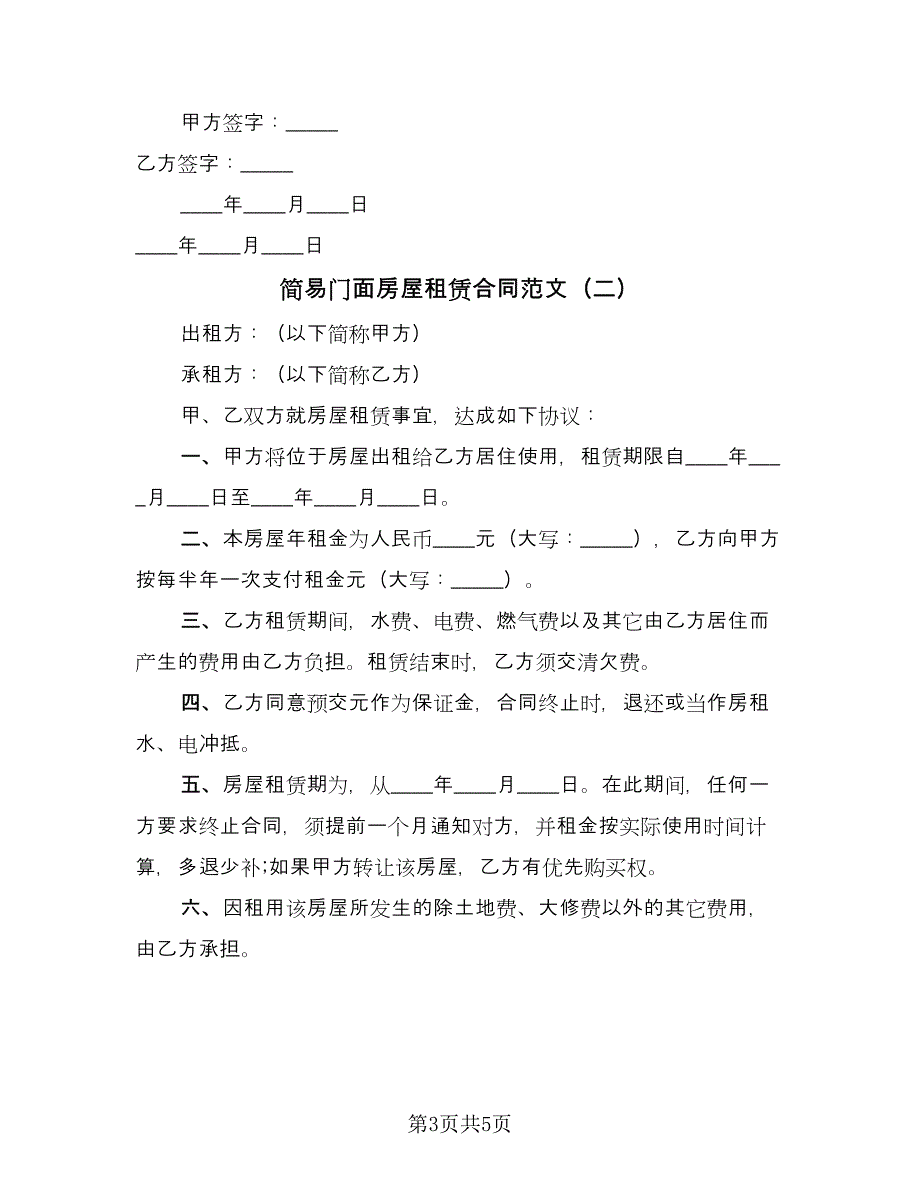 甲方签字：_____
乙方签字：_____
____年____月____日
____年____月____日
简易门面房屋租赁合同范文（二）
出租方：（以下简称甲方）
承租方：（以下简称乙方）
甲、乙双方就房屋租赁事宜，达成如下协议：
一、甲方将位于房屋出租给乙方居住使用，租赁期限自____年___
_月____日至____年____月____日。
二、本房屋年租金为人民币____元（大写：_____），乙方向甲方
按每半年一次支付租金元（大写：_____）。
三、乙方租赁期间，水费、电费、燃气费以及其它由乙方居住而
产生的费用由乙方负担。租赁结束时，乙方须交清欠费。
四、乙方同意预交元作为保证金，合同终止时，退还或当作房租
水、电冲抵。
五、房屋租赁期为，从____年____月____日。在此期间，任何一
方要求终止合同，须提前一个月通知对方，并租金按实际使用时间计
算，多退少补;如果甲方转让该房屋，乙方有优先购买权。
六、因租用该房屋所发生的除土地费、大修费以外的其它费用，
由乙方承担。
第3页共5页